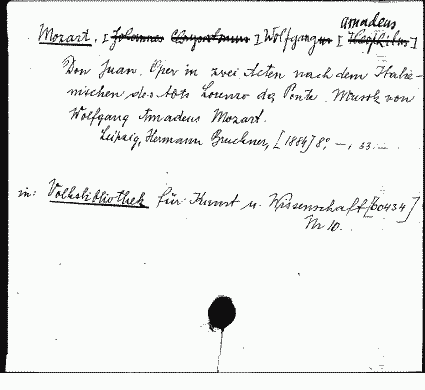 Amadeus
Mozart, [Johannes Chrysostomus] Wolfgang [Theophilus]
Don Juan. Oper in zwei Acten nach dem Italie-
nischen des Abts Lorenzo da Ponte. Musik von
Wolfgang Amadeus Mozart.
Leipzig, Hermann Bruckner, [1884] 8°, —, 53.
in: Volksbibliothek für Kunst u. Wissenschaft [60434]
Nr 10.